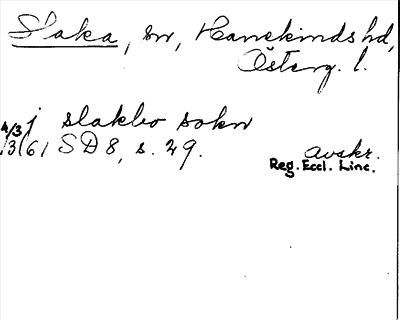 Slaka, sn, Hanekinds hd,
Österg. l.
j slakbo sokn
4/3 1361 SD 8, s. 29. Avskr.
Reg. Eccl. Linc.